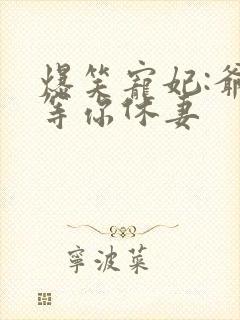 爆笑寵妃:爺
等你休妻
寧波菜